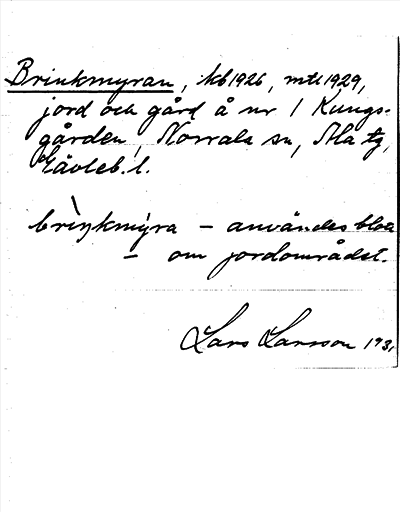 Brinkmyran, kb 1926, mtl 1929,
jord och gård å nr 1 Kungs-
gården, Norrala sn, Ala tg,
Gävleb. l.
brìŋkmýra – användes bloa
– om jordområdet.
Lars Larsson 1931